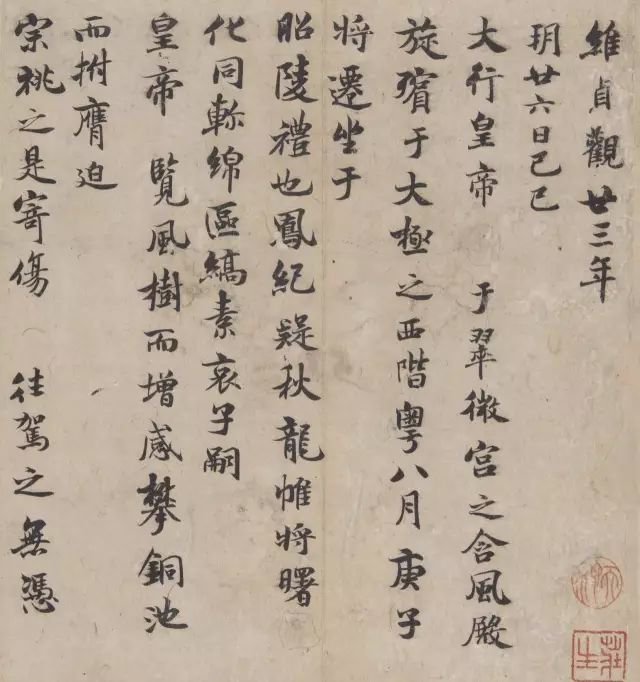 維貞觀廿三年
玥廿六日己巳
大行皇帝 于翠微宮之含風殿
旋殯于大極之西階粤八月庚子
將遷坐于
昭陵禮也鳳紀疑秋龍帷將曙
化同軫綿區縞素哀子嗣
皇帝 覽風樹而增感攀銅池
而拊膺迫
宗祧之是寄傷 往駕之無憑
莊生